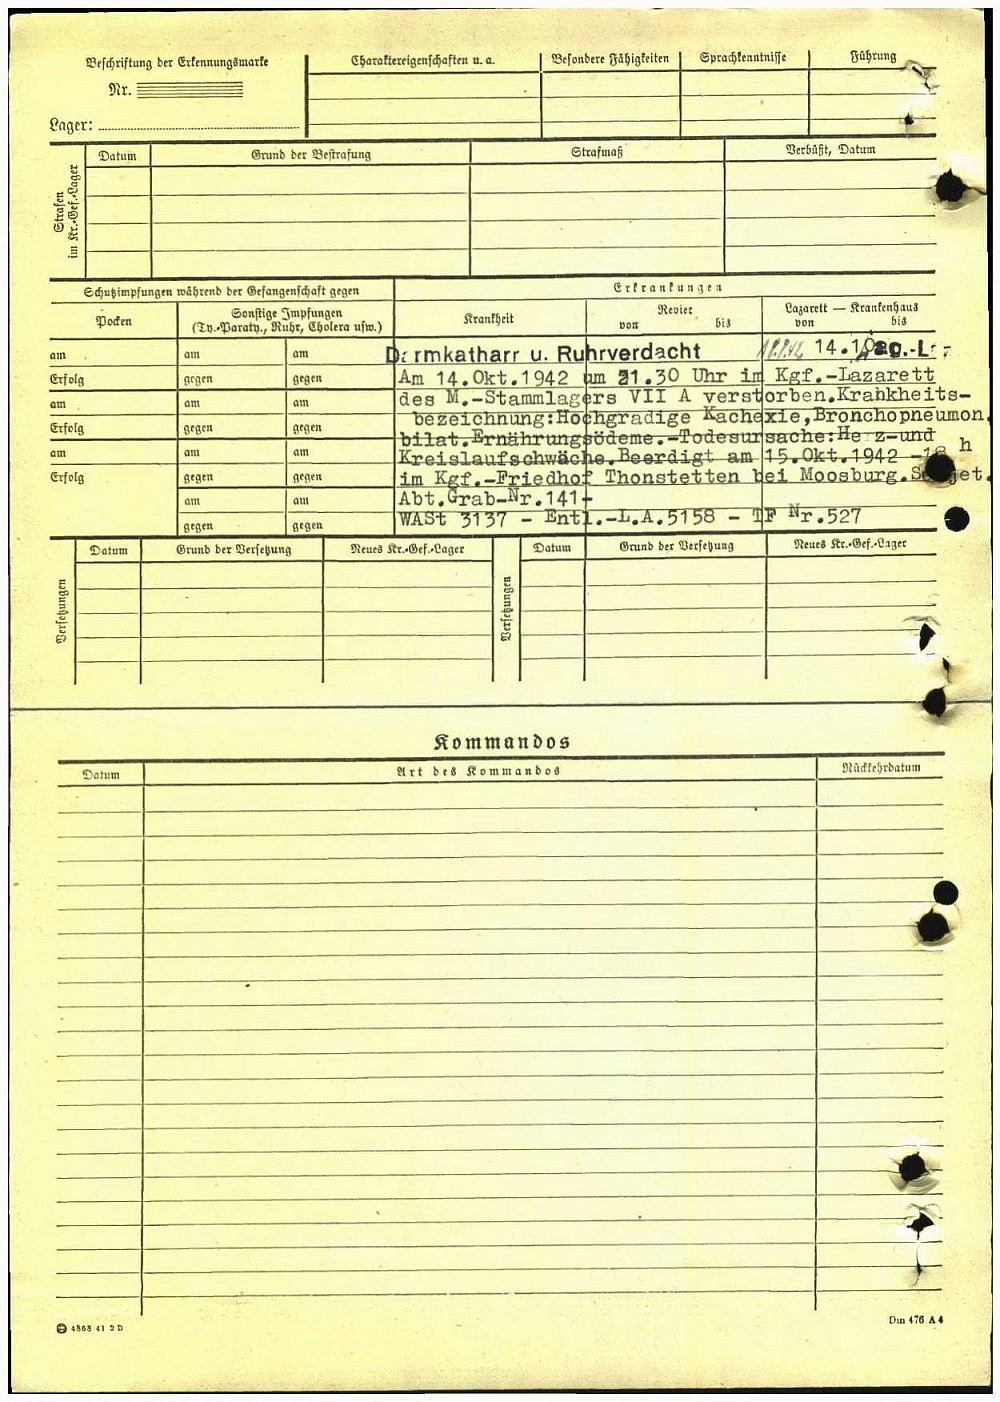 Beschriftung der Erkennungsmarke
Nr.
Lager:
Charaktereigenschaften u. a.
Besondere Fähigkeiten
Sprachkenntnisse
Führung
Strafen
im Kr.-Gef.-Lager
Datum
Grund der Bestrafung
Strafmaß
Verbüßt, Datum
Schutzimpfungen während der Gefangenschaft gegen
Erkrankungen
Pocken
Sonstige Impfungen
(Ty.-Paraty., Ruhr, Cholera usw.)
Krankheit
Revier
von bis
Lazarett — Krankenhaus
von bis
am am am
Erfolg gegen gegen
am am am
Erfolg gegen gegen
am am am
Erfolg gegen gegen
am am
gegen gegen
Darmkatharr u. Ruhrverdacht 14.10
Am 14.Okt.1942 um 21.30 Uhr im Kgf.-Lazarett
des M.-Stammlagers VII A verstorben.Krankheits-
bezeichnung:Hochgradige Kachexie,Bronchopneumon.
bilat.Ernährungsödeme.-Todesursache:Herz-und
Kreislaufschwäche.Beerdigt am 15.Okt.1942 - h
im Kgf.-Friedhof Thonstetten bei Moosburg.Sowjet.
Abt.Grab-Nr.141-
WASt 3137 - Entl.-L.A.5158 - TF Nr.527
Versetzungen
Datum
Grund der Versetzung
Neues Kr.-Gef.-Lager
Versetzungen
Datum
Grund der Versetzung
Neues Kr.-Gef.-Lager
Kommandos
Datum
Art des Kommandos
Rückkehrdatum
4868 41 2 D
Din 476 A 4